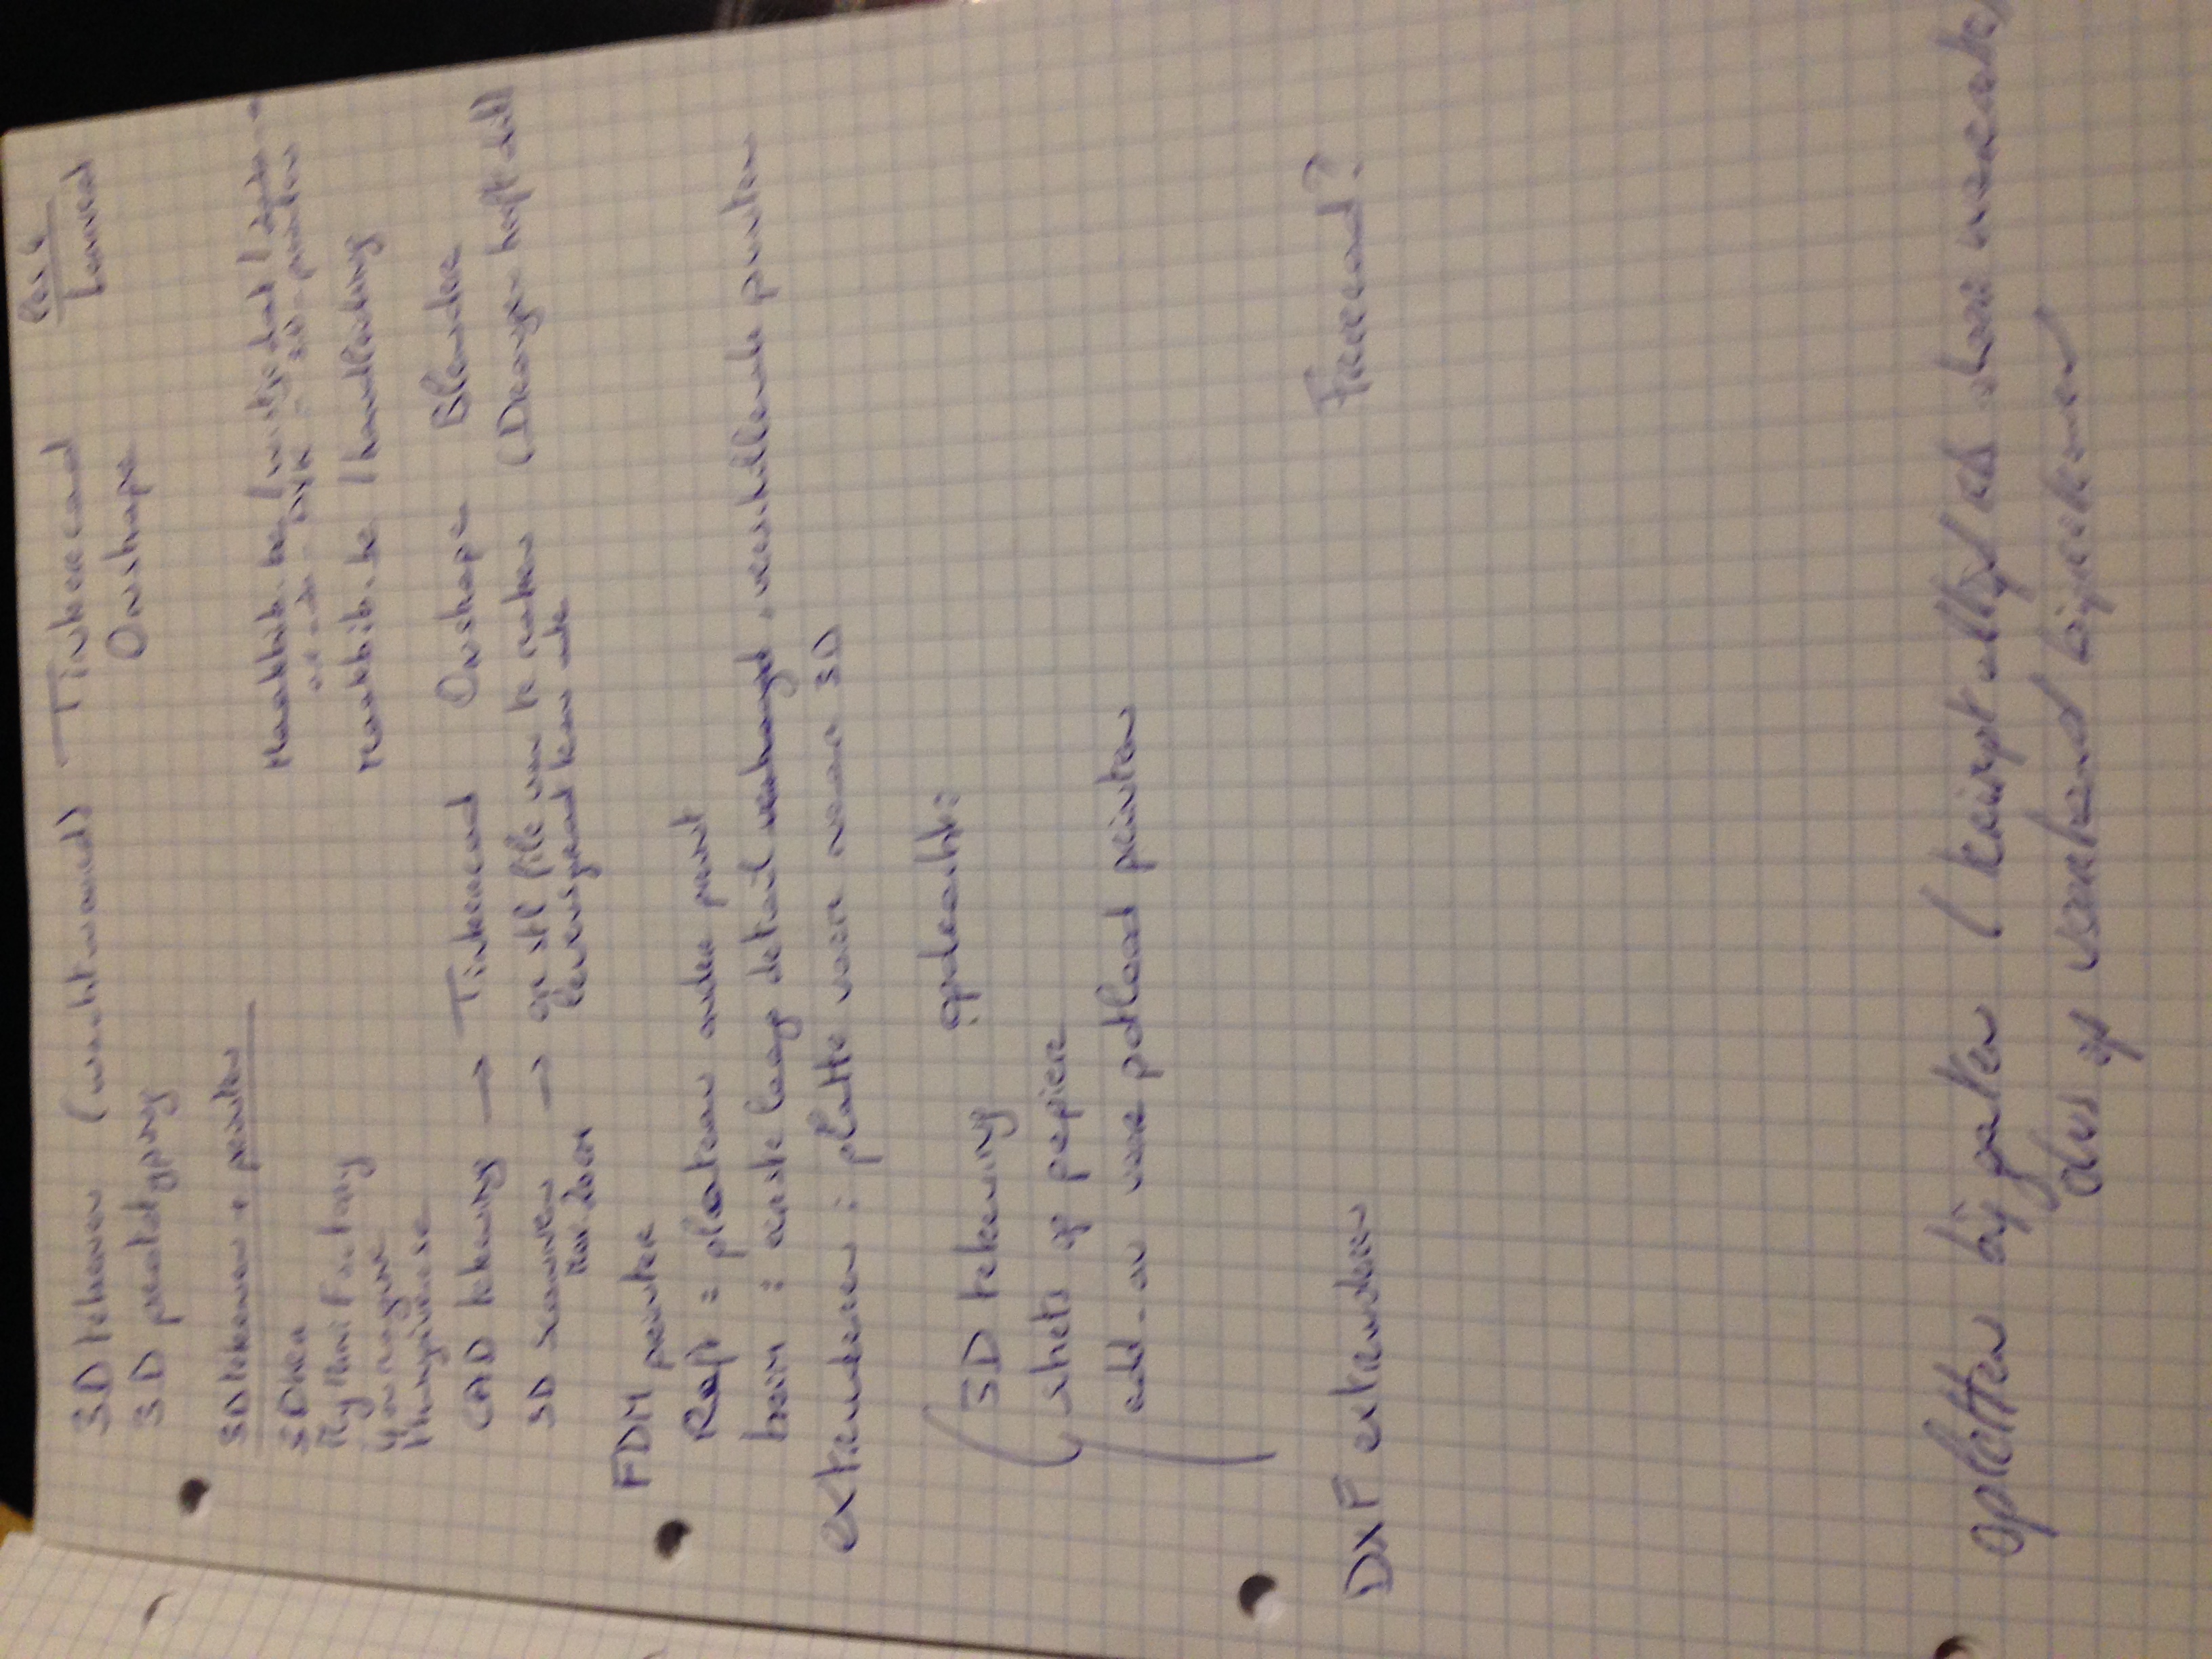 les 4
3D tekenen (wachtwoord) Tinkercad Lennert
3D prototyping Onshape
3D tekenen + printen
3Dhea
MyMiniFactory
Youmagine
Thingiverse
Maakbib.be /wistjedat/
3D-printen
Maakbib.be /handleiding
CAD tekening → Tinkercad Onshape Blender
3D scannen → om stl file van te maken heeft dit)
Max. 20cm levensgroot kan ook
FDM printer
Raft = plateau onder print
brim : eerste laag detail verschillende printen
extruderen : platte vorm naar 3D
opdracht:
3D tekening
schets op papier
add-on voor potlood printen
DXF extruderen
Freecad?
opletten bij gaten (krimpt altijd als door
dus op voorhand bijrekenen